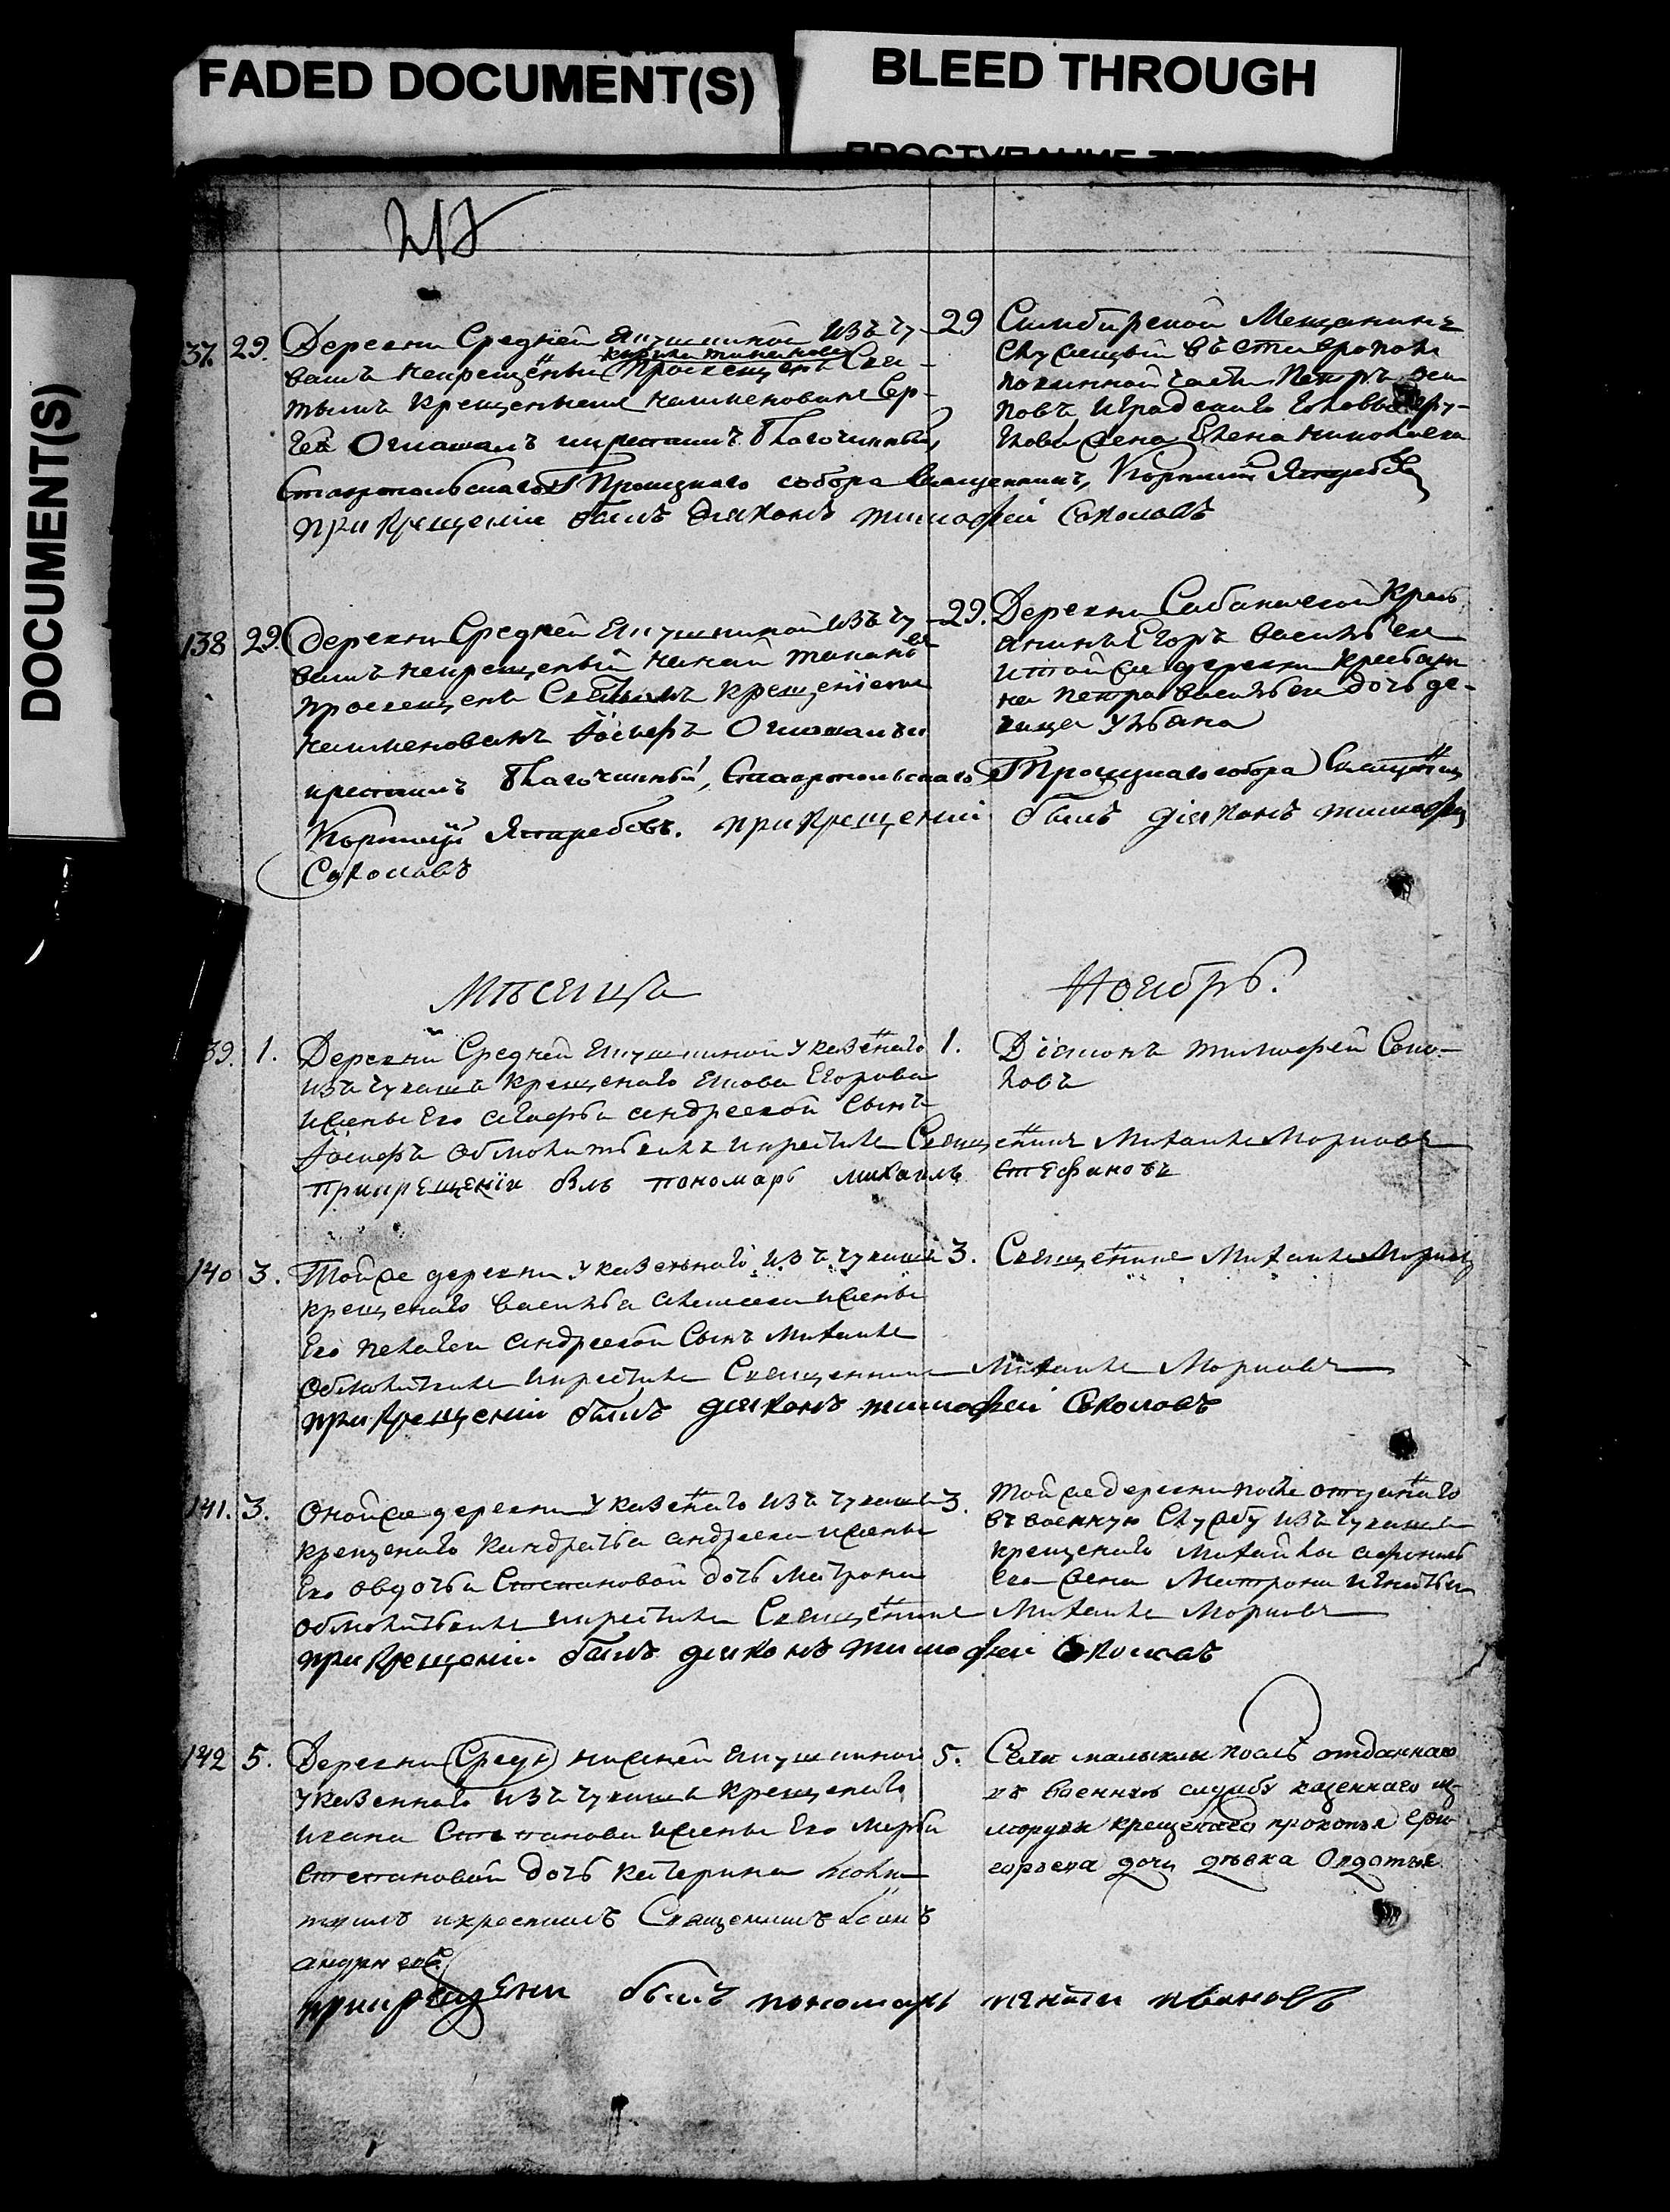 FADED DOCUMENT(S)
BLEED THROUGH
DOCUMENT(S)
37. 29. Деревни Средней Якушкиной изъ чу-
вашъ некрещеный просвещенъ Свя-
тымъ крещениемъ наименованъ Сер-
гей Оглашалъ икрестилъ Благочинный,
Ставропольскаго Троицкаго собора Священникъ, Корнилій Ястребовъ
при крещеніи былъ діяконъ тимофей Соколовъ
29 Симбирской Мещанинъ
въ ставропол
части Петръ
повъ
жена Елена николаева
138 29. деревни Средней Якушкиной изъ чу-
вашъ некрещеный
просвещенъ Святымъ крещеніемъ
наименованъ Іосифъ Оглашалъ и
крестилъ Благочинный, Ставропольскаго Троицкаго собора Священникъ
Корнилій Ястребовъ. при крещеніи былъ діяконъ тимофей
Соколовъ
29. Деревни Кресть
янинъ Егоръ васильевъ
итойже деревни крестьяни
на петра васильева дочь де-
вица ульяна
Мѣсяца Ноябрь.
39. 1. Деревни Средней Якушкиной указнаго
изъ чувашъ крещенаго Егорова
ижены Его агафьи андреевой Сынъ
Іосифъ обмолитвилъ икрестилъ Священникъ Михаилъ Морновъ
прикрещеніи былъ пономарь михаилъ стефановъ
1. Діаконъ тимофей Соко-
ловъ
140 3. Тойже деревни указеннаго изъ чувашъ
крещенаго василья алексеева ижены
Его пелагеи андреевой Сынъ михаилъ
обмолитвилъ икрестилъ Священникъ Михаилъ Морновъ
при крещеніи былъ діяконъ тимофей Соколовъ
3. Священникъ Михаилъ Морновъ
141. 3. Онойже деревни указеннаго изъ чувашъ
крещенаго кандратья андреева ижены
Его овдотьи Степановой дочь матрона
обмолитвилъ икрестилъ Священникъ Михаилъ Морновъ
при крещеніи былъ діяконъ тимофей Соколовъ
3. Тойже деревни после отданаго
въ военную Службу изъ чувашъ
крещенаго михайла афонась
ева жена Матрона игнатьева
142 5. Деревни нижней Якушкиной
указеннаго изъ чувашъ крещенаго
ивана Степанова ижены Его марьи
степановой дочь катерина моли
твилъ икрестилъ Священникъ Іоаннъ
андреевъ
прикрещени былъ пономарь игнатеи ивановъ
5. Села малыклы послѣ отданнаго
въ военную службу казеннаго из
мордвы крещенаго прокопья гри
горьева дочь дѣвка Овдотья